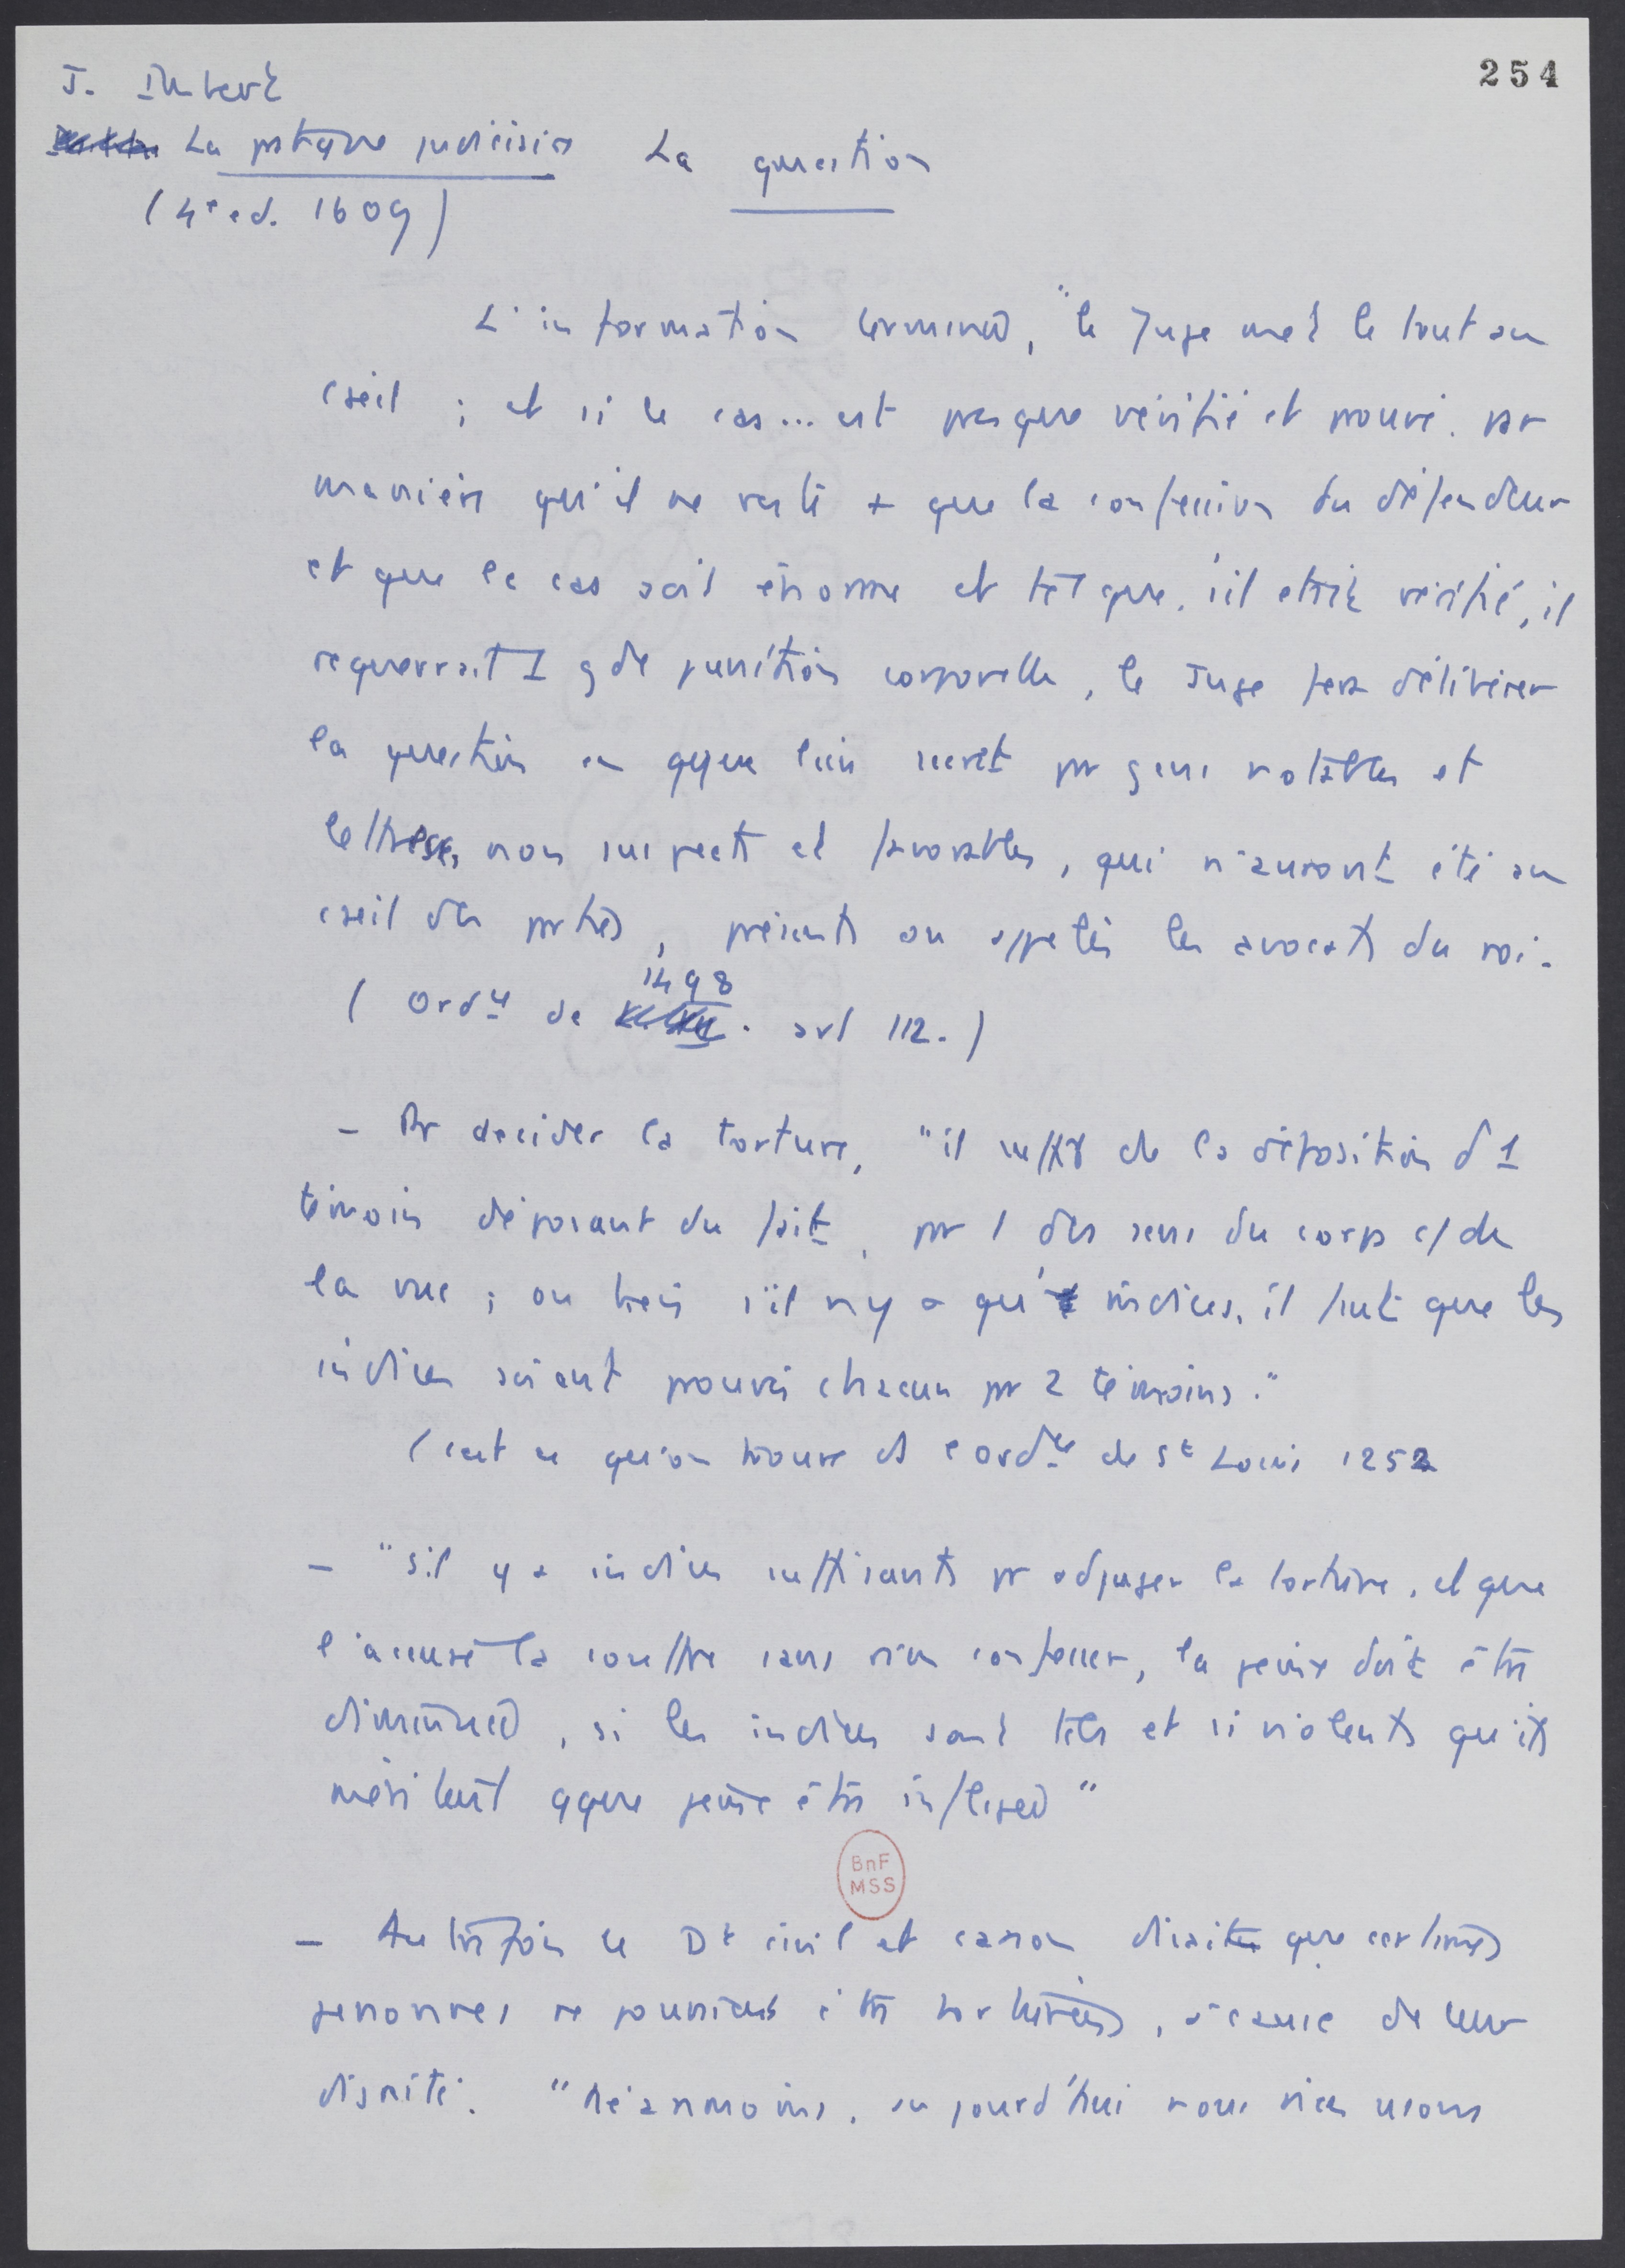 254
J. Imbert
La pratique judiciaire La question
(4e ed. 1609)
L'information terminée, "le Juge met le tout au
cseil ; et si le cas... est presque vérifié et prouvé. par
manière qu'il ne reste + que la confession du défendeur
et que le cas soit énorme et tel que, s'il était vérifié, il
requerrait 1 gde punition corporelle, le Juge fera délibérer
la question en qque lieu secret par gens notables et
lettrés, non suspects et favorables, qui n'auront été au
cseil des parties, présents ou appelés les avocats du roi.
1498
( Ordce de . art 112. )
- Pr decider la torture, "il suffit de la déposition d'1
témoin déposant du fait, par 1 des sens du corps c/ de
la vue ; ou bien s'il n'y a qu' indices, il faut que les
indices soient prouvés chacun par 2 témoins."
(cest ce qu'on trouve ds l'ordce de St Louis 1252
- "s'il y a indices suffisants pr adjuger la torture, et que
l'accusé la souffre sans rien confesser, la peine doit être
diminuée, si les indices sont tels et si violents qu'ils
méritent qque peine être infligée"
BnF
MSS
- Autrefois le Dt civil et canon disait que certaines
personnes ne pouvaient être torturées, à cause de leur
dignité. "Néanmoins, aujourd'hui nous n'en usons